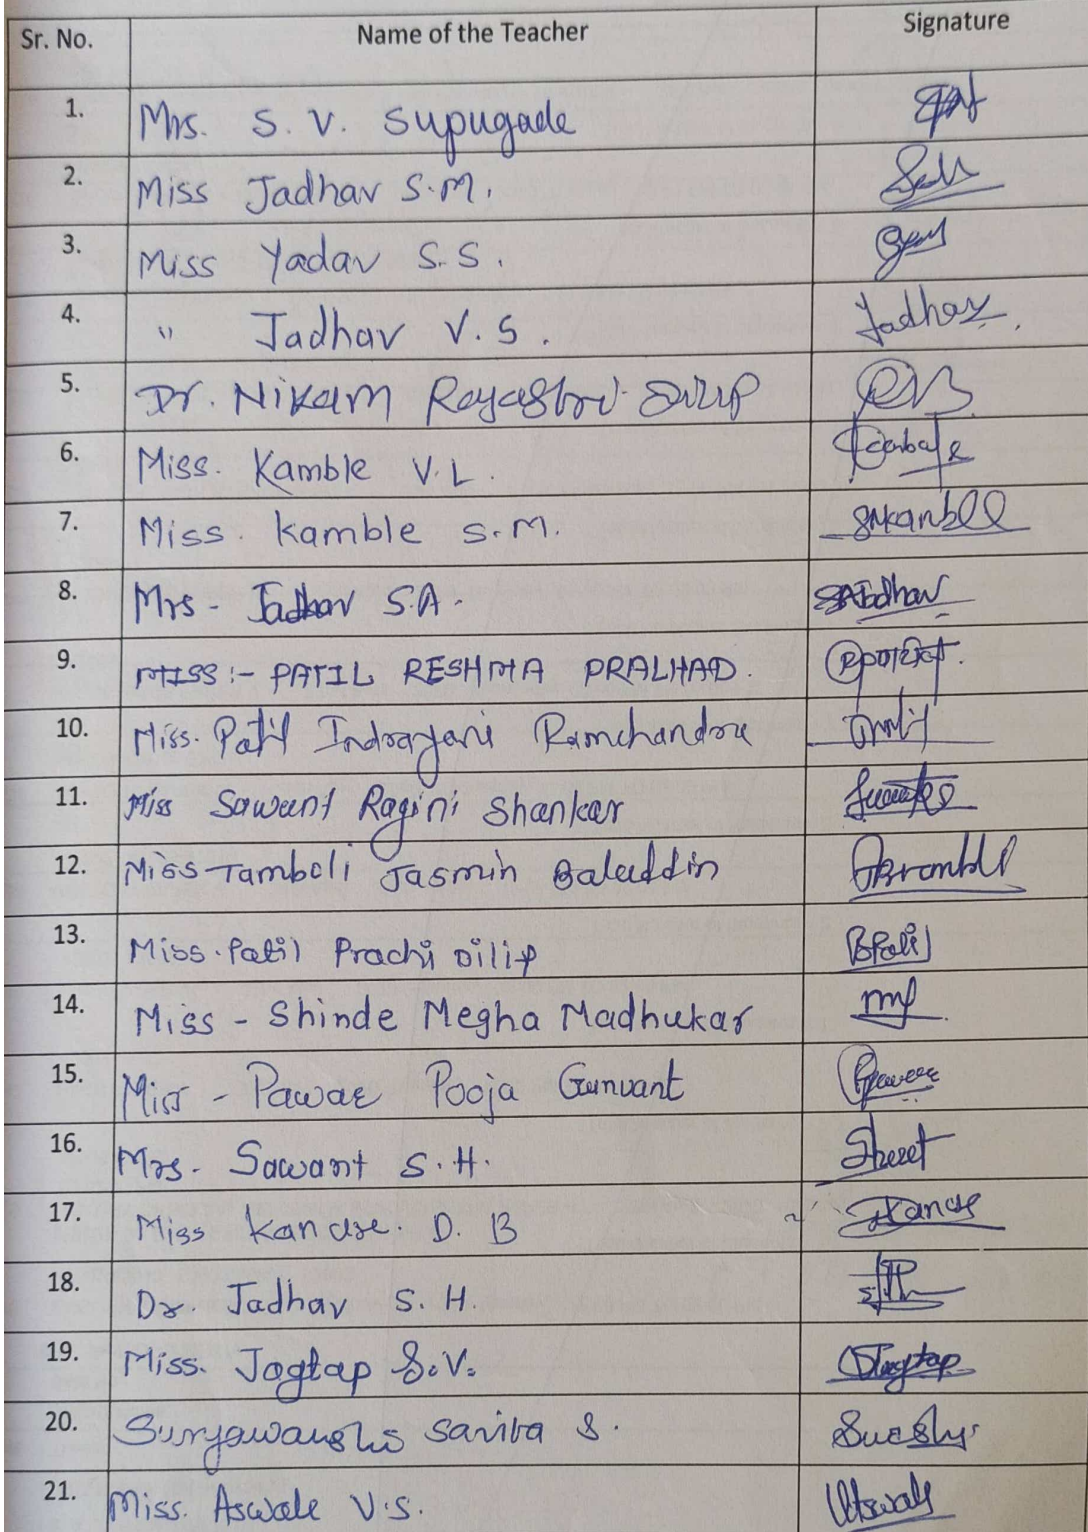 Sr. No. Name of the Teacher Signature
1. Mrs. S. V. Supugade
2. Miss Jadhav S.M.
3. Miss Yadav S.S.
4. " Jadhav V.S. Jadhav
5. Dr. Nikam Rajashri Dilip
6. Miss. Kamble V.L.
7. Miss. Kamble S.M. SMKamble
8. Mrs - Jadhav S.A. SAJadhav
9. MISS :- PATIL RESHMA PRALHAD.
10. Miss. Patil Indrayani Ramchandra
11. Miss Sawant Ragini Shankar
12. Miss Tamboli Jasmin Baladdin
13. Miss. Patil Prachi Dilip
14. Miss - Shinde Megha Madhukar
15. Miss - Pawar Pooja Gunvant
16. Mrs. Sawant S.H.
17. Miss Kandse. D. B
18. Dr. Jadhav S. H.
19. Miss. Jagtap S.V. Jagtap
20. Suryawanshi Sarita S.
21. Miss. Aswale V.S.